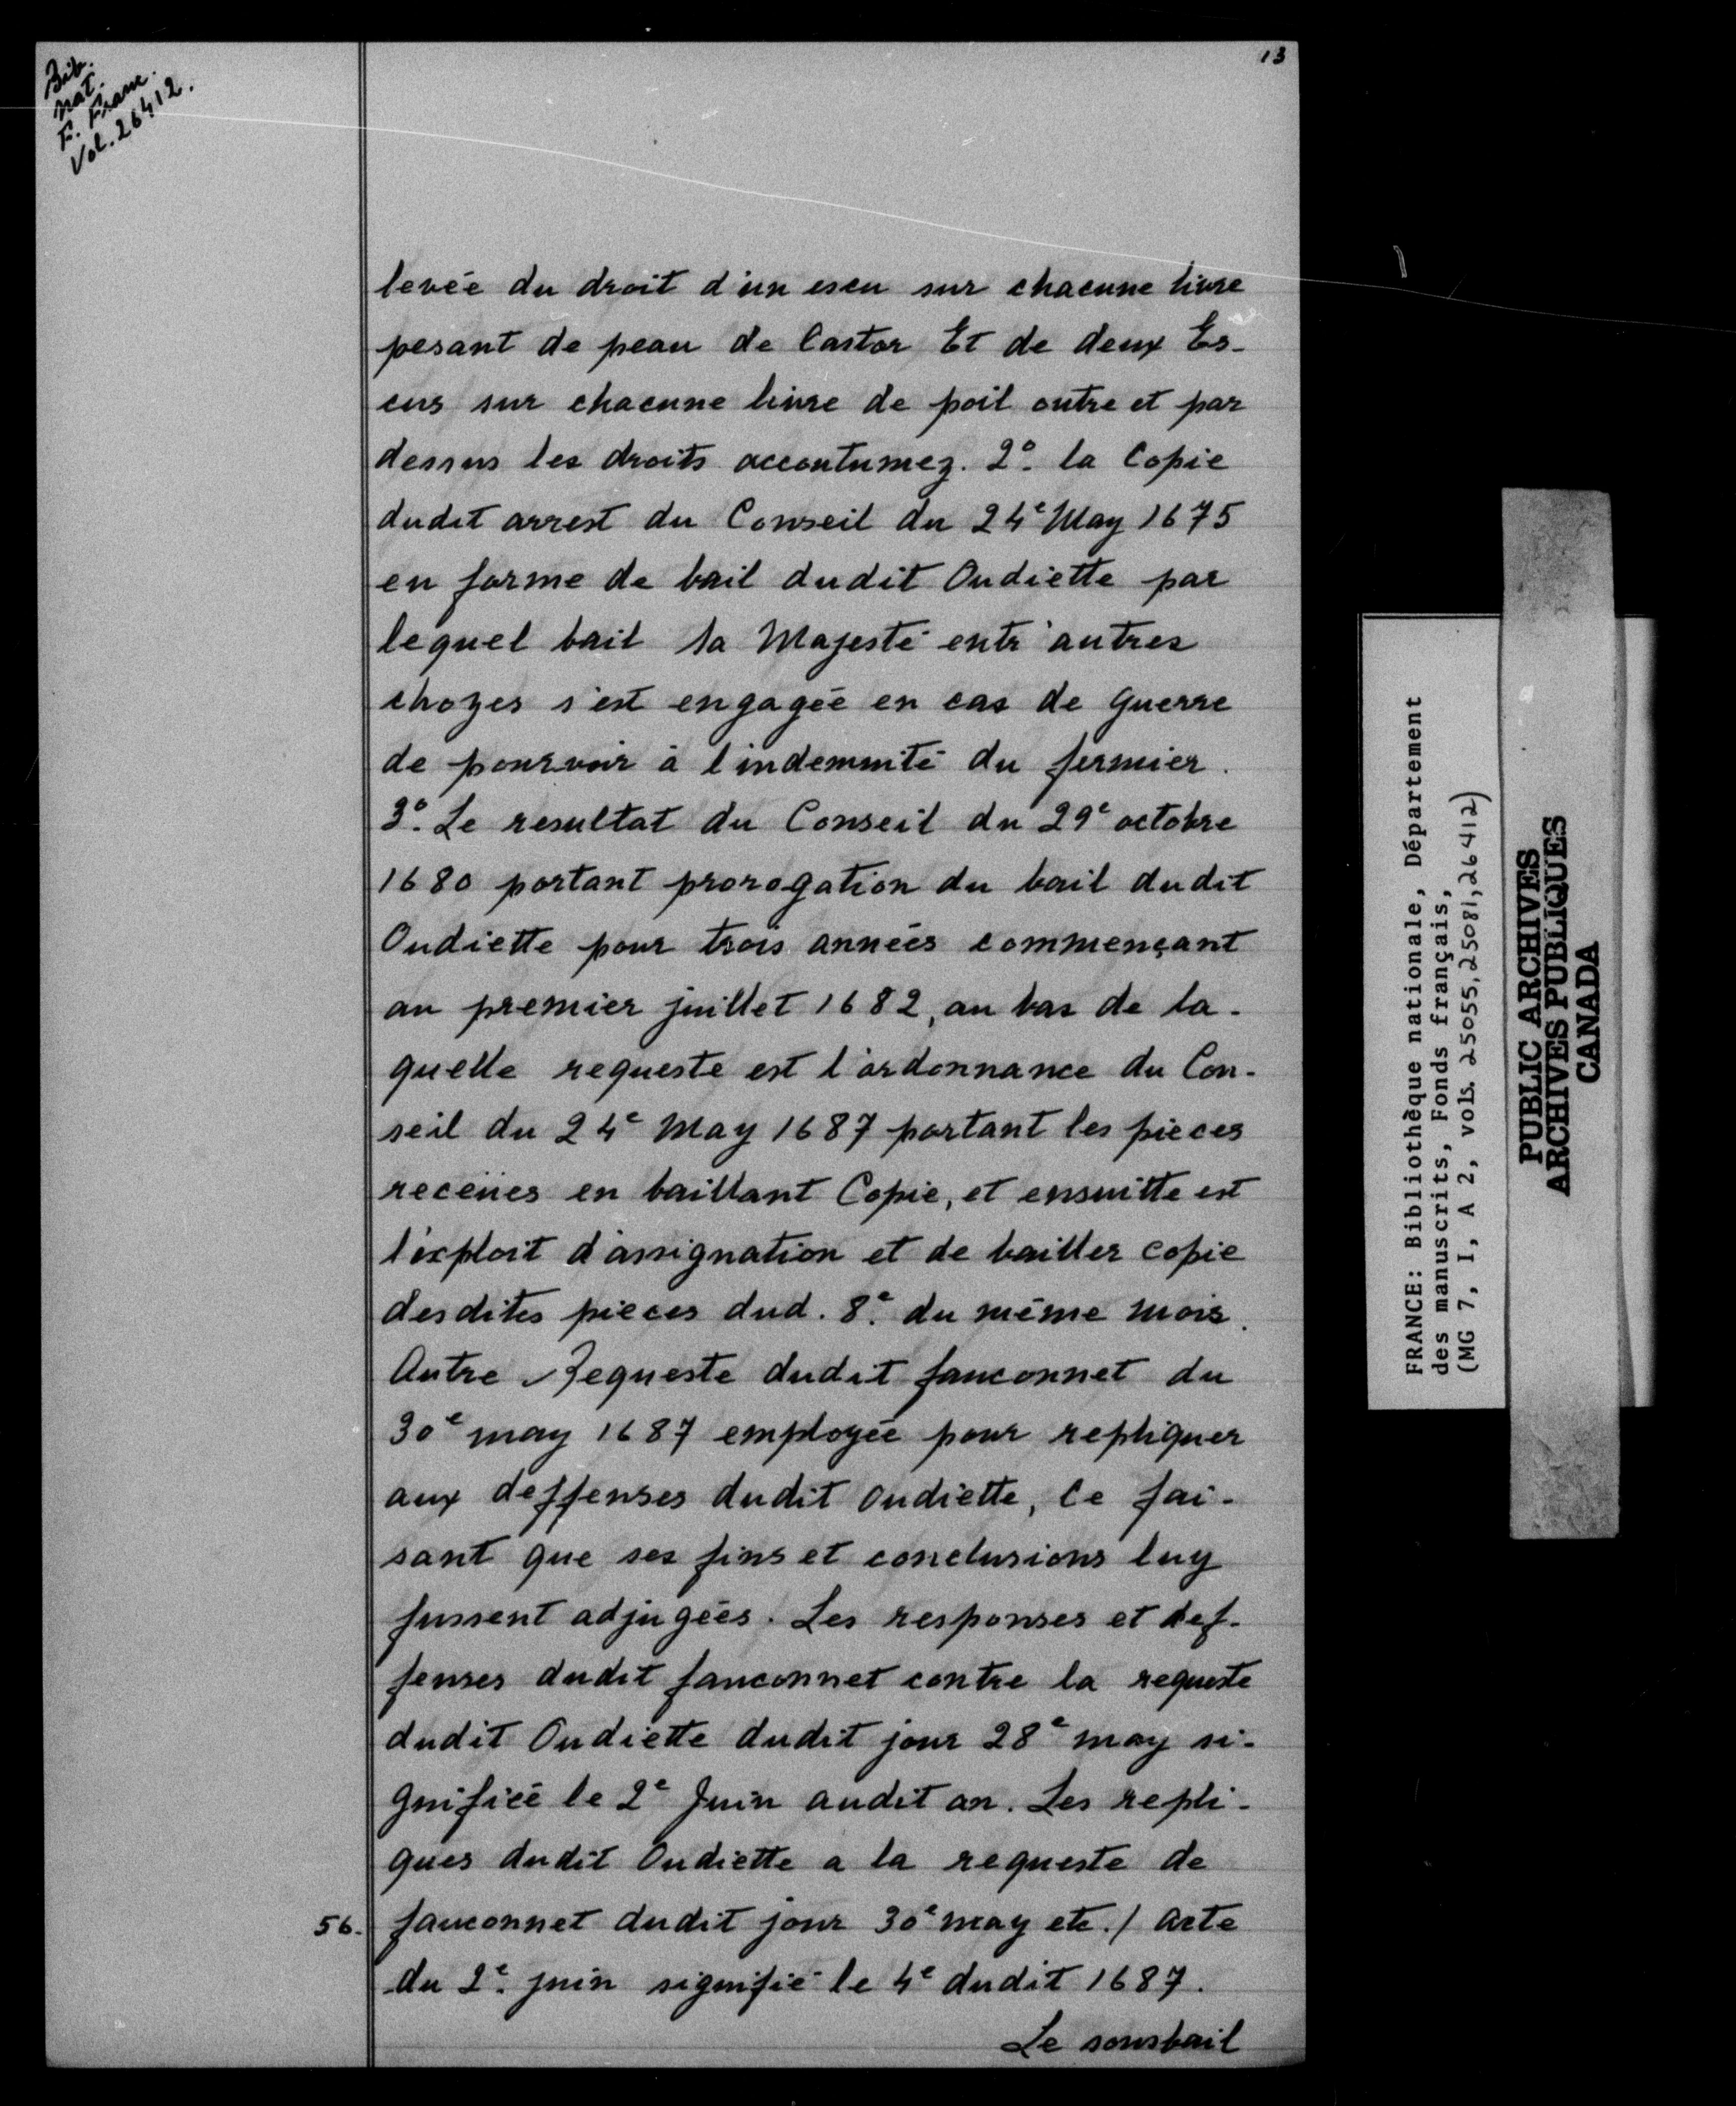 13
Bib.
nat.
F. Franc.
Vol. 26412.
levée du droit d'un escu sur chacune livre
pesant de peau de Castor Et de deux Es-
cus sur chacune livre de poil outre et par
dessus les droits accoutumez. 2º. la Copie
dudit arrest du Conseil du 24e May 1675
en forme de bail dudit Oudiette par
lequel bail Sa Majesté entr'autres
chozes s'est engagée en cas de guerre
de pourvoir à l'indemnité du fermier.
3º. Le resultat du Conseil du 29e octobre
1680 portant prorogation du bail dudit
Oudiette pour trois années commençant
au premier juillet 1682, au bas de la-
quelle requeste est l'ordonnance du Con-
seil du 24e May 1687 portant les pieces
receües en baillant Copie, et ensuitte est
l'exploit d'assignation et de bailler copie
desdites pieces dud. 8e. du même mois.
Autre Requeste dudit fauconnet du
30e may 1687 employée pour repliquer
aux deffenses dudit Oudiette, Ce fai-
sant que ses fins et conclusions luy
fussent adjugées. Les responses et def-
fenses dudit fauconnet contre la requeste
dudit Oudiette dudit jour 28e may si-
gnifiée le 2e Juin audit an. Les repli-
ques dudit Oudiette a la requeste de
56. fauconnet dudit jour 30e may etc./ Acte
du 2e. juin signifié le 4e dudit 1687.
Le sousbail
FRANCE: Bibliothèque nationale, Département
des manuscrits, Fonds français,
(MG 7, I, A 2, vols. 25055, 25081, 26412)
PUBLIC ARCHIVES
ARCHIVES PUBLIQUES
CANADA